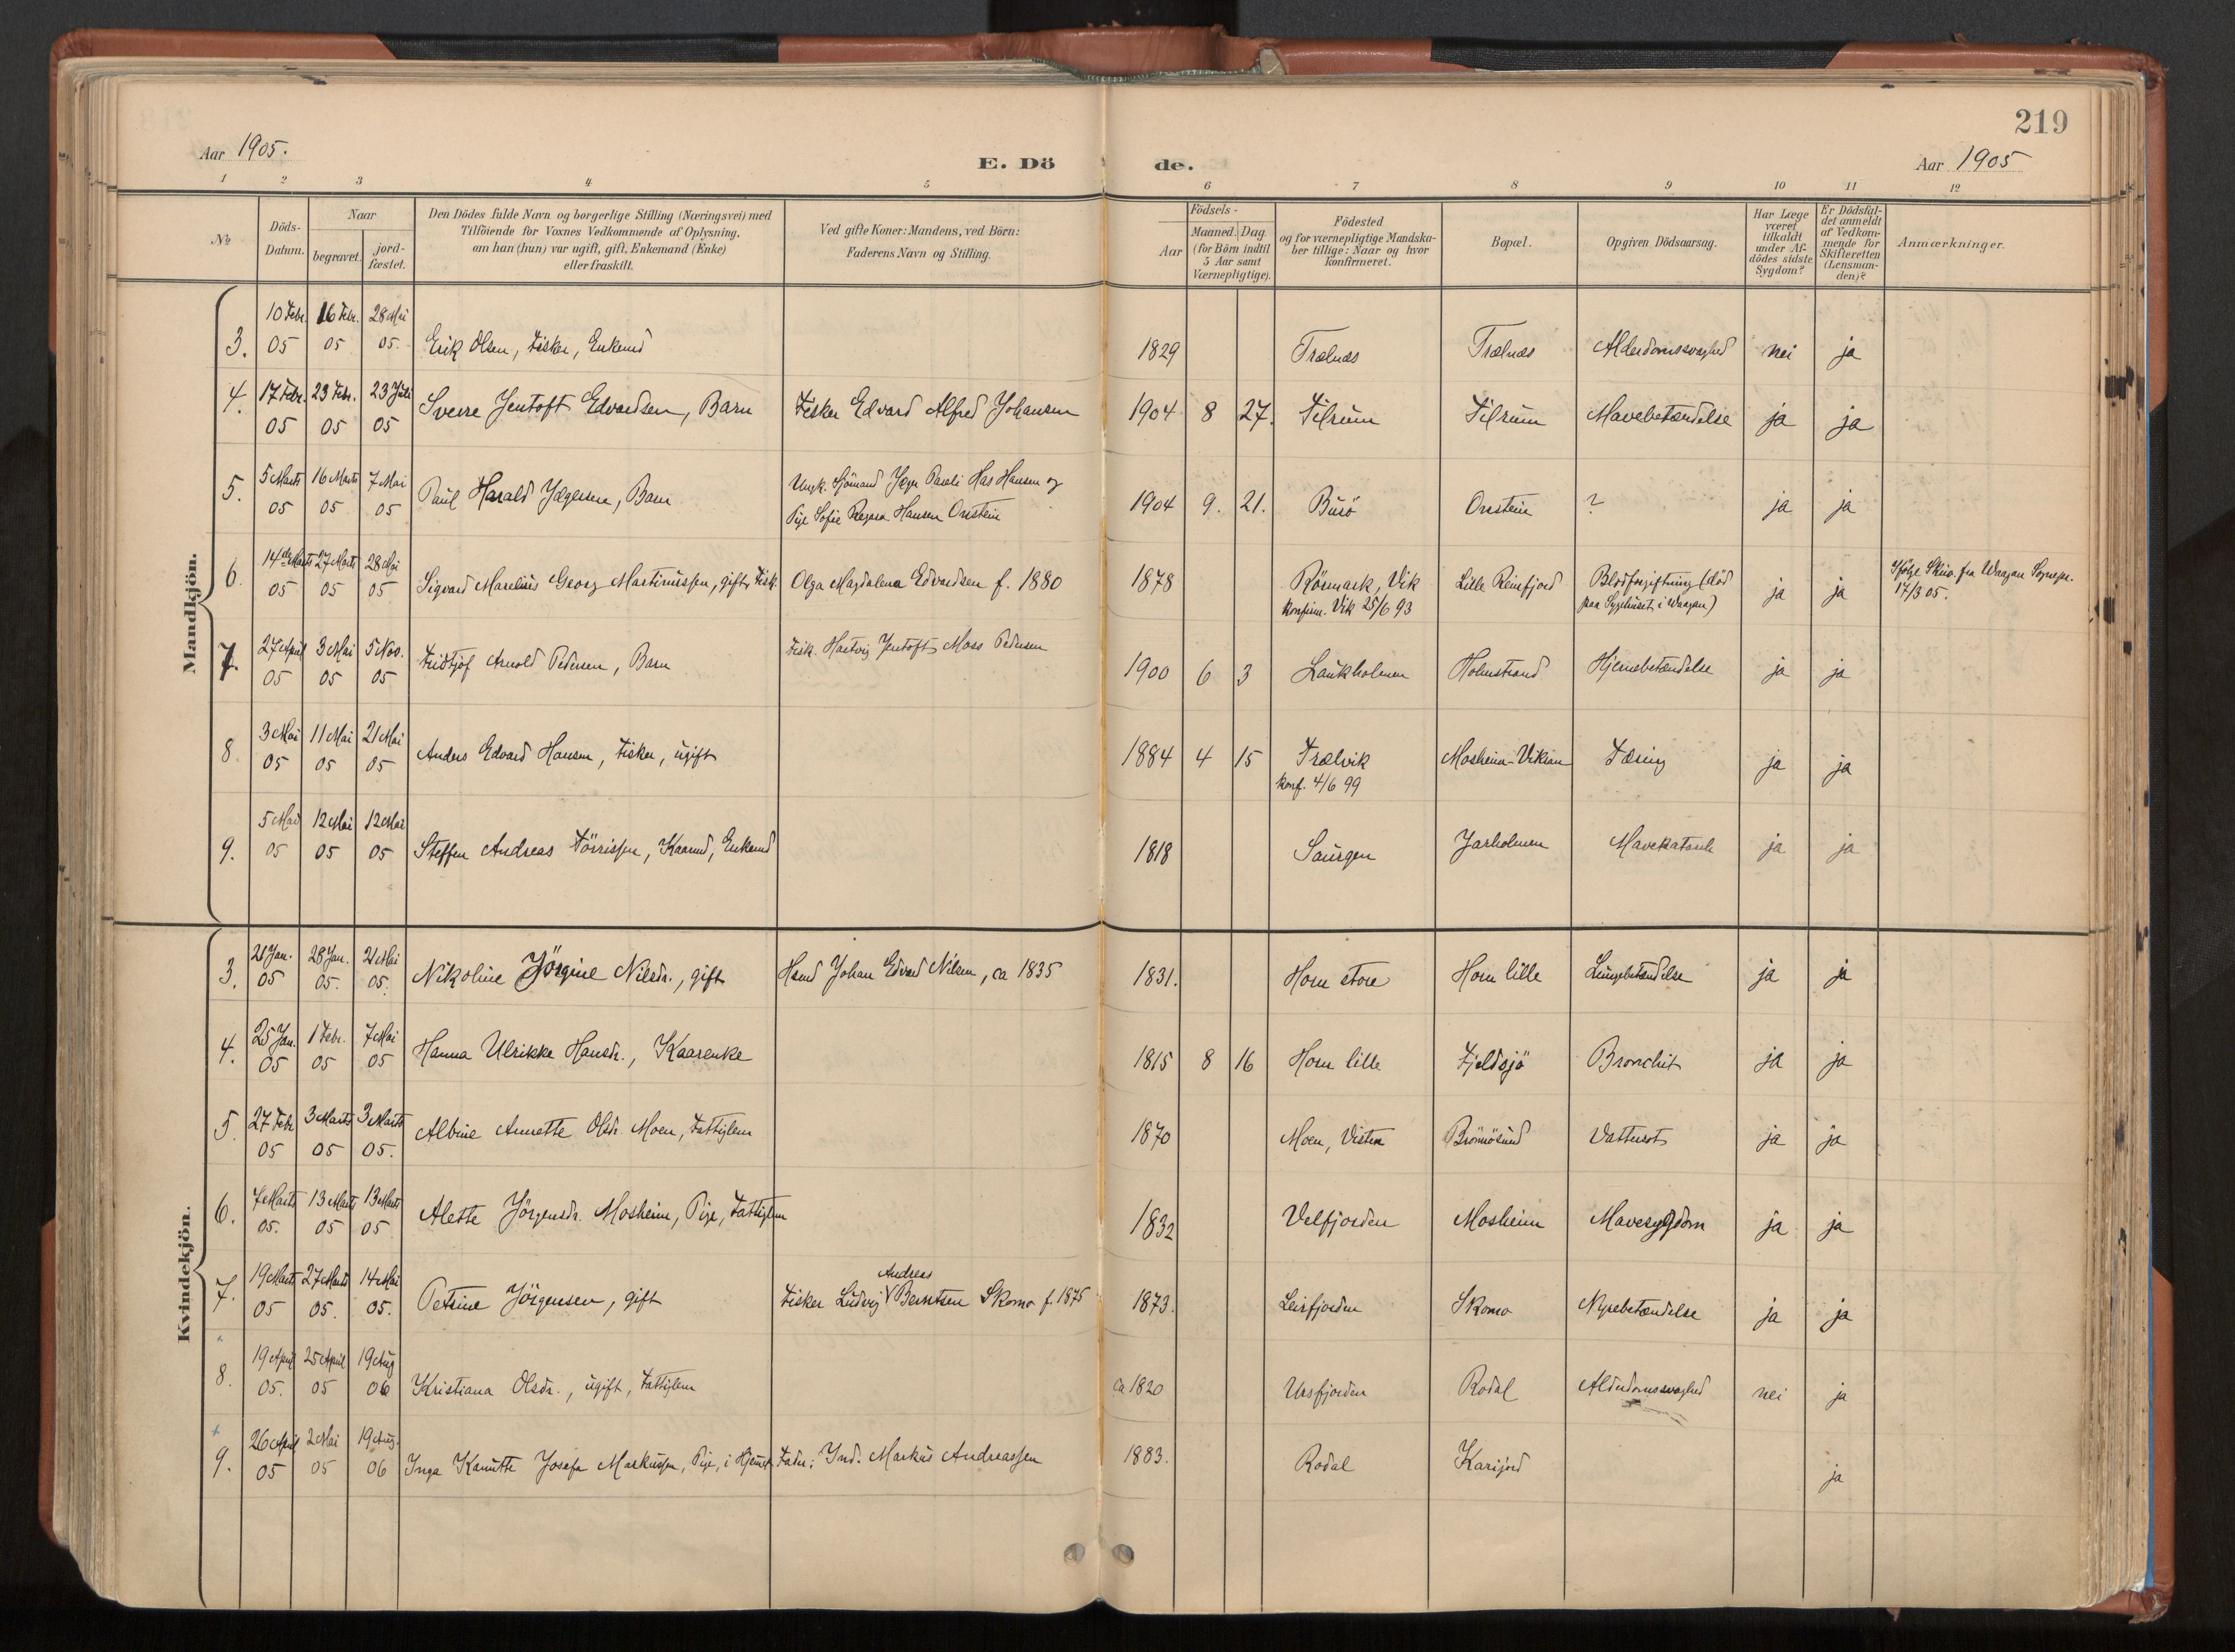 219
Aar 1905.
E. Dö
de.
Aar 1905
1 2 3 4 5 6 7 8 9 10 11 12
No
Döds-
Datum.
Naar
begravet.
jord-
fæstet.
Den Dödes fulde Navn og borgerlige Stilling (Næringsvei) med
Tilföiende for Voxnes Vedkommende af Oplysning,
om han (hun) var ugift, gift, Enkemand (Enke)
eller fraskilt.
Ved gifte Koner: Mandens, ved Börn:
Faderens Navn og Stilling.
Födsels-
Aar
Maaned. Dag.
(for Börn indtil
5 Aar samt
Værnepligtige).
Födested
og for værnepligtige Mandska-
ber tillige: Naar og hvor
konfirmeret.
Bopæl.
Opgiven Dödsaarsag.
Har Læge
været
tilkaldt
under Af-
dödes sidste
Sygdom?
Er Dödsfal-
det anmeldt
af Vedkom-
mende for
Skifteretten
(Lensman-
den)?
Anmærkninger.
Mandkjön.
10 Febr. 16 Febr. 28 Mai
3. 05 05 05. Erik Olsen, Fisker, Enkemd 1829 Trælnæs Trælnæs Alderdomssvaghed nei ja
17 Febr. 23 Febr. 23 Juli
4. 05 05 05 Sverre Jentoft Edvardsen, Barn Fisker Edvard Alfred Johansen 1904 8 27. Tilrum Tilrum Mavebetændelse ja ja
5 Marts 16 Marts 7 Mai
Ungk. Sjömand Hansen og
5. 05 05 05 Paul Harald Barn Pige Sofie Hansen Onstein 1904 9. 21. Busö Onstein ? ja ja
14de Marts 27 Marts 28 Mai
6. 05 05 05 Sigvard Marelius Georg Martinussen, gift, Fisk. Olga Magdalena Edvardsen f. 1880 1878 Rösmark, Vik Lille Reinfjord Blodforgiftning (död ja ja Ifölge Skriv. fra Waagan Sognepr.
konfirm. Vik 25/6 93 paa Sygehuset i Waagan) 17/3 05.
27 April 3 Mai 5 Nov. Fisk. Hartvig Jentoft Moss Pedersen
7. 05 05 05 Fridtjof Arnold Pedersen, Barn 1900 6 3 Laukholmen Holmstrand Hjernebetændelse ja ja
3 Mai 11 Mai 21 Mai
8. 05 05 05 Anders Edvard Hansen, Fisker, ugift 1884 4 15 Trælvik Mosheim-Vikran Tæring ja ja
konf. 4/6 99
5 Mai 12 Mai 12 Mai
9. 05 05 05 Steffen Andreas Törrissen, Kaarmd, Enkemd 1818 Saurgen Jarholmen Mavekatarrh ja ja
Kvindekjön.
21 Jan. 28 Jan. 21 Mai
3. 05 05. 05. Nikoline Jörgine Nilsdr., gift Hsmd Johan Edvard Nilsen, ca 1835 1831. Horn store Horn lille Lungebetændelse ja ja
25 Jan. 1 Febr. 7 Mai
4. 05 05 05 Hanna Ulrikke Hansdr., Kaarenke 1815 8 16 Horn lille Fjeldsjö Bronchit ja ja
27 Febr. 3 Marts 3 Marts
5. 05 05 05. Albine Annette Olsdr. Moen, Fattiglem 1870 Moen, Vistn Brönnösund Vattersot ja ja
7 Marts 13 Marts 13 Marts
6. 05. 05 05 Alette Jörgensdr. Mosheim, Pige, Fattiglem 1832 Velfjorden Mosheim Mavesygdom ja ja
19 Marts 27 Marts 14 Mai Andreas
7. 05 05. 05. Petrine Jörgensen, gift Fisker Ludvig Berntsen Skomo f. 1875 1873. Leirfjorden Skomo Nyrebetændelse ja ja
19 April 25 April 19 Aug
8. 05. 05 06 Kristiana Olsdr., ugift, Fattiglem ca 1820 Ursfjorden Rodal Alderdomssvaghed nei ja
26 April 2 Mai 19 Aug.
9. 05 05 06 Inga Kanutte Josefa Markussen, Pige, i Hjemst Fader: Ind. Markus Andreassen 1883. Rodal Karijord ja